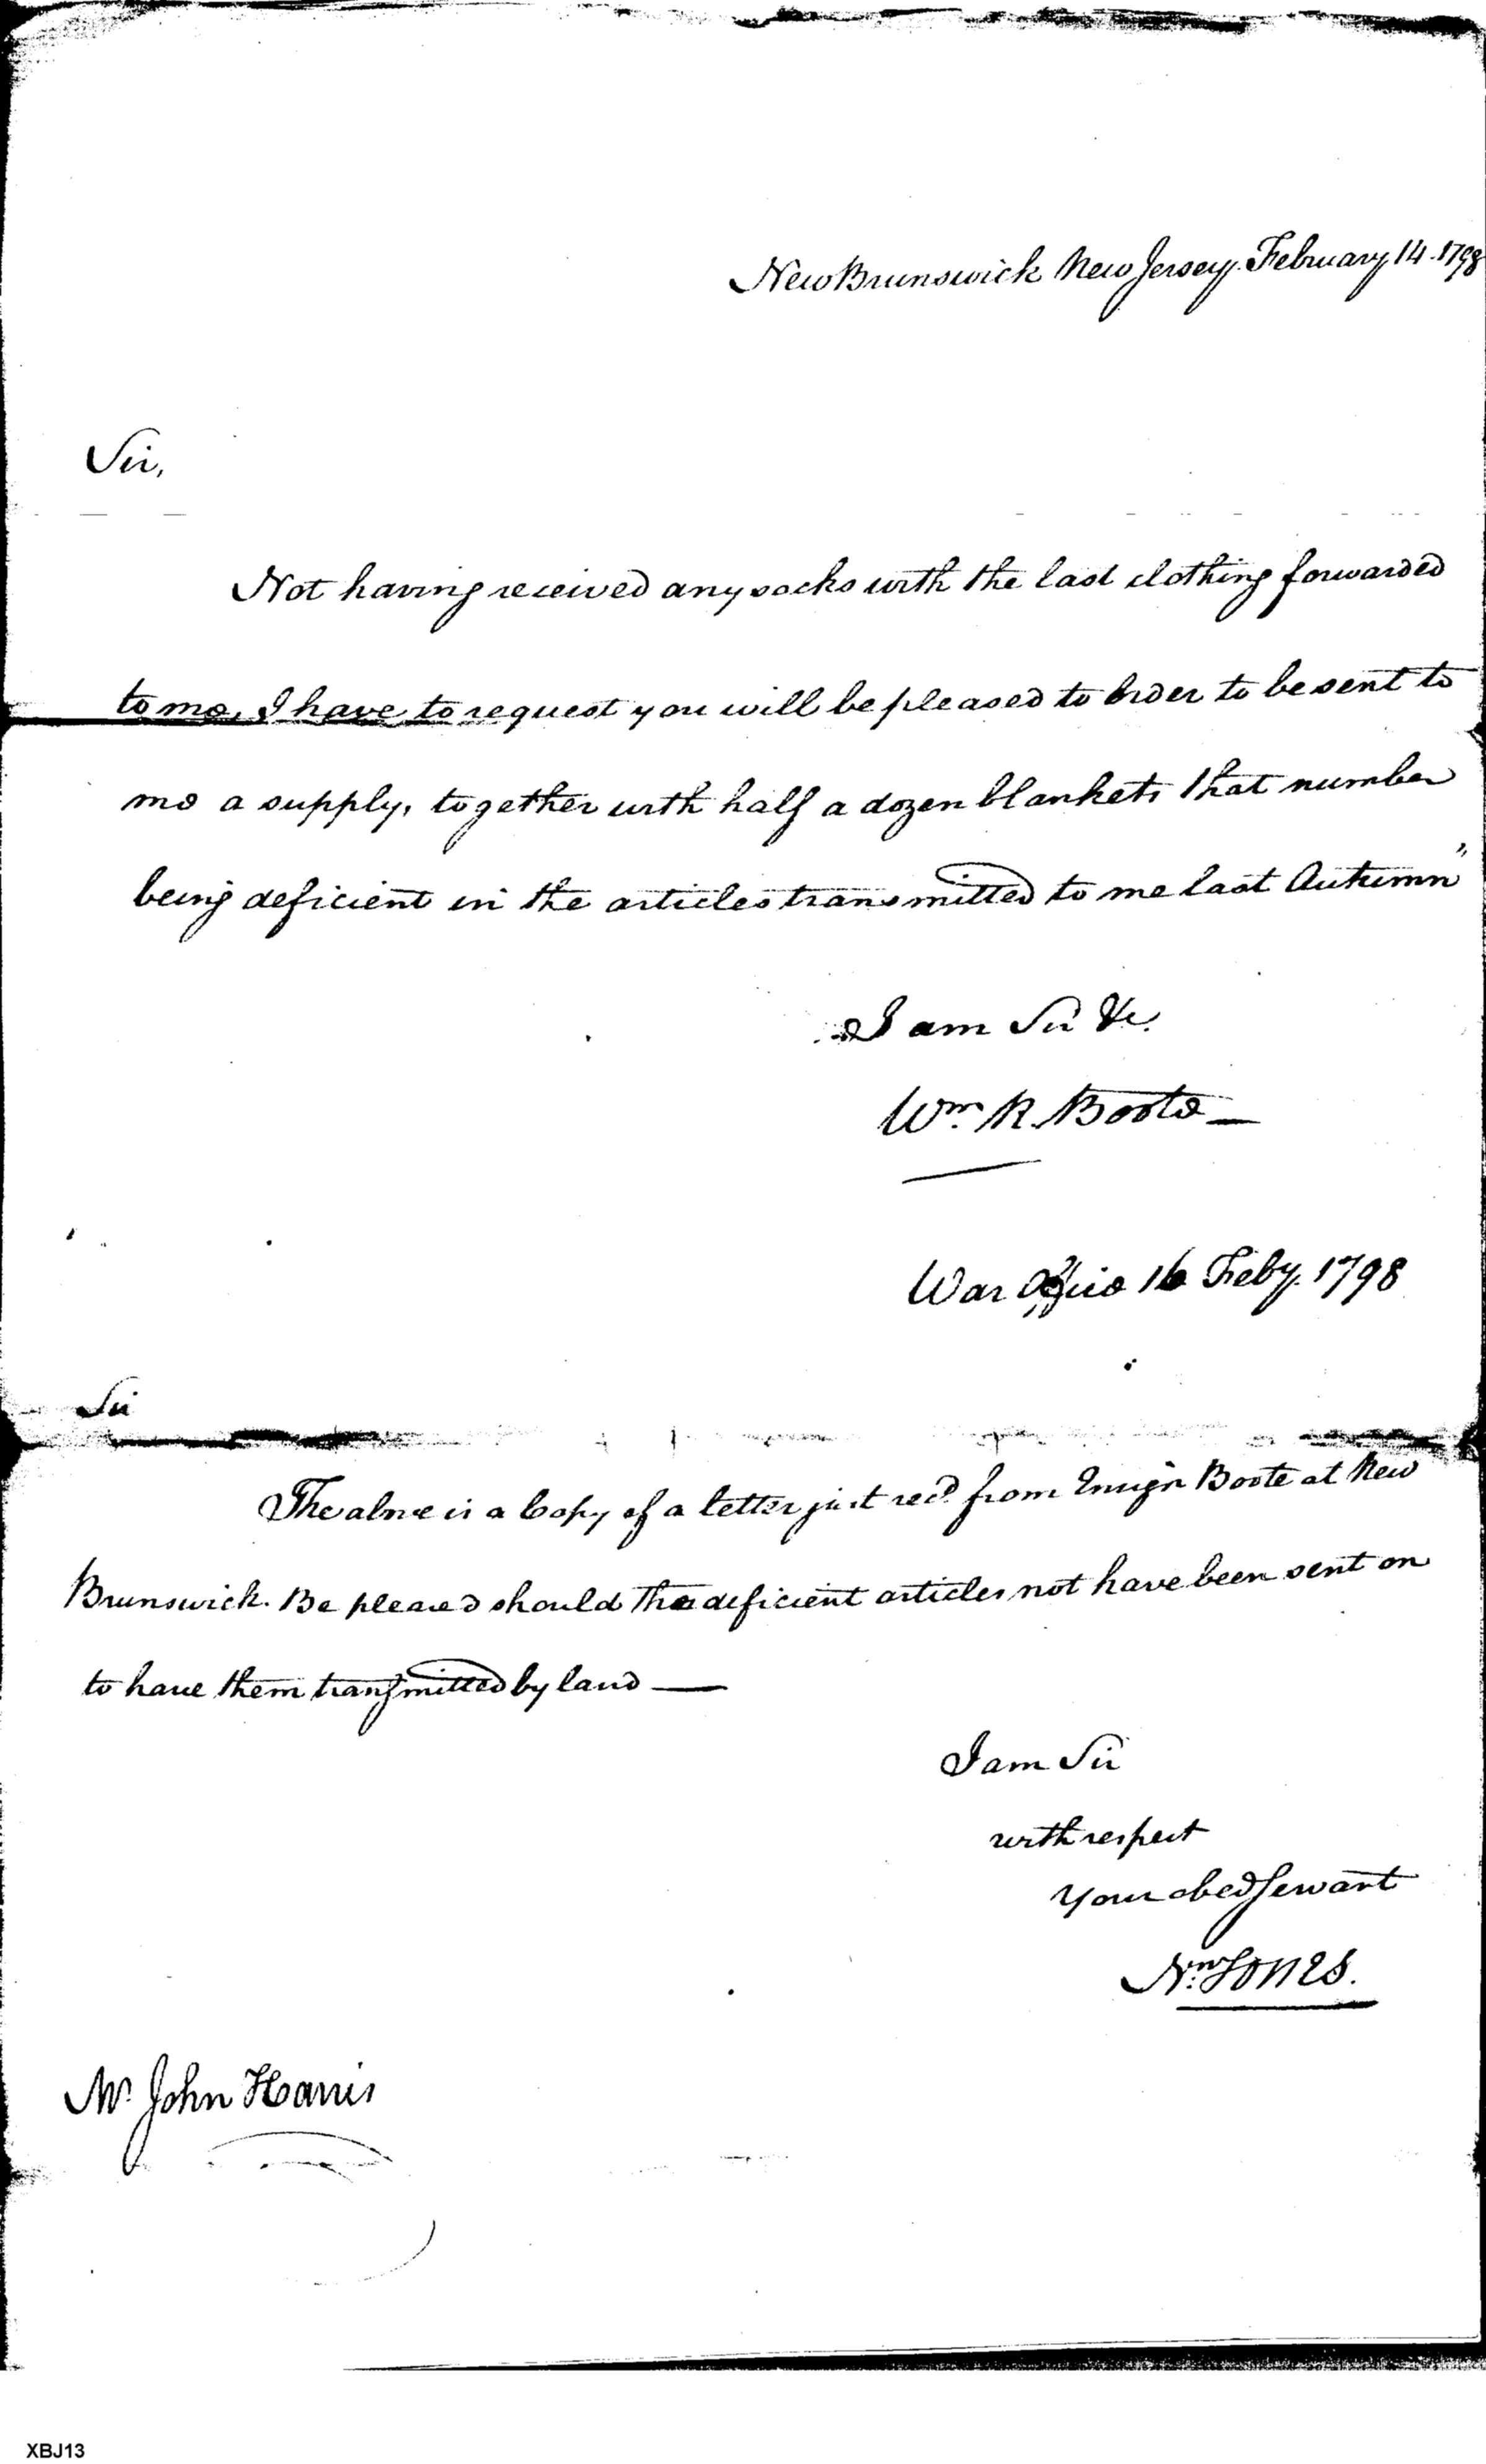 New Brunswick New Jersey. February 14. 1798
Sir,
Not having received any socks with the last clothing forwarded
to me, I have to request you will be pleased to order to be sent to
me a supply, together with half a dozen blankets that number
being deficient in the articles transmitted to me last Autumn"
I am Sir &c.
Wm. R. Boote
War Office 16 Feby. 1798
Sir
The above is a Copy of a letter just recd. from Ensign Boote at New
Brunswick. Be pleased should the deficient articles not have been sent on
to have them transmitted by land —
I am Sir
with respect
Your obed Servant
Nm. Jones.
Mr. John Harris
XBJ13